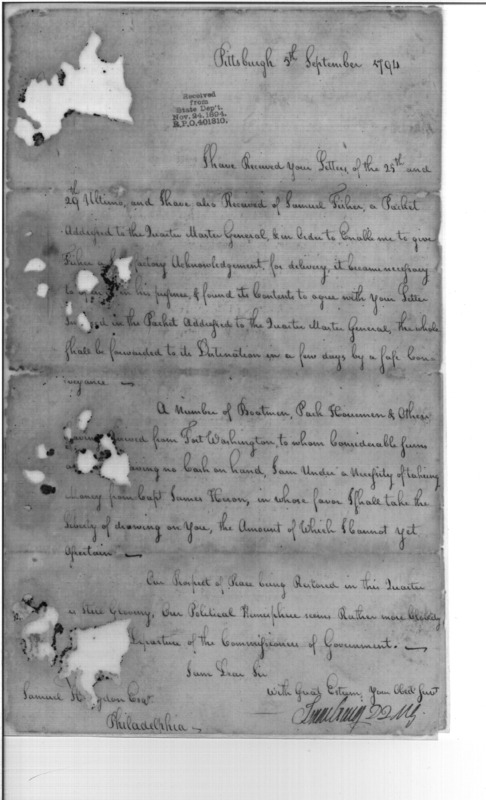 Pittsburgh 5th September 1794
Received
from
State Dep't.
Nov. 24, 1894.
R.P.O. 401810.
I have Received your Letters of the 25th and
29th Ultimo, and I have also Received of Samuel Fisher, a Packet
Addressed to the Quarter Master General, & in Order to Enable me to give
Fisher Acknowledgement, for delivery, it became necessary
in his presence, & found its Contents to agree with your Letter
in the Packet Addressed to the Quarter Master General, the whole
shall be forwarded to its Destination in a few days by a safe Con-
veyance.
A Number of Boatmen, Pack Horsemen & Others
from Fort Washington, to whom Considerable sums
having no Cash on hand, I am Under a Necessity of taking
Money from Capt James Heron, in whose favor I shall take the
liberty of drawing on You, the Amount of Which I cannot yet
Ascertain
Our Prospect of Peace being Restored in this Quarter
is still Gloomy, Our Political Hemisphere seems Rather more
Departure of the Commissioners of Government.
I am Dear Sir
With Great Esteem, Your Obed Servt
Samuel Esqr
Philadelphia